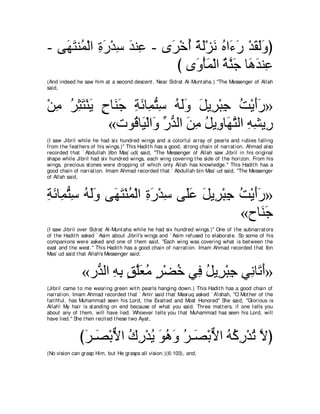 وَلَقَدْ رَءَاهُ نَزْلَةً أُخْرَى - عِندَ سِدْرَةِ الْمُنتَهَى -
عِندَهَا جَنَّةُ الْمَأْوَى )
(And indeed he saw him at a second descent. Near Sidrat Al-Muntaha.) "The Messenger of Allah
said,
«رَأَيْتُ جِبْرِيلَ وَلَهُ سِتُّمِائَةِ جَنَاحٍ يَنْتَثِرُ مِنْ
رِيشِهِ التَّهَاوِيلُ مِنَ الدُّرِّ وَالْيَاقُوت»
(I saw Jibril while he had six hundred wings and a colorful array of pearls and rubies falling
from the feathers of his wings.)" This Hadith has a good, strong chain of narration. Ahmad also
recorded that `Abdullah (Ibn Mas`ud) said, "The Messenger of Allah saw Jibril in his original
shape while Jibril had six hundred wings, each wing covering the side of the horizon. From his
wings, precious stones were dropping of which only Allah has knowledge." This Hadith has a
good chain of narration. Imam Ahmad recorded that `Abdullah bin Mas`ud said, "The Messenger
of Allah said,
«رَأَيْتُ جِبْرِيلَ عَلَى سِدْرَةِ الْمُنْتَهَى وَلَهُ سِتُّمِائَةِ
جَنَاح»
(I saw Jibril over Sidrat Al-Muntaha while he had six hundred wings.)" One of the subnarrators
of the Hadith asked `Asim about Jibril's wings and `Asim refused to elaborate. So some of his
companions were asked and one of them said, "Each wing was covering what is between the
east and the west." This Hadith has a good chain of narration. Imam Ahmad recorded that Ibn
Mas`ud said that Allah's Messenger said:
«أَتَانِي جِبْرِيلُ فِي خُضْرٍ مُعَلَّقٍ بِهِ الدُّر»
(Jibril came to me wearing green with pearls hanging down.) This Hadith has a good chain of
narration. Imam Ahmad recorded that `Amir said that Masruq asked `A'ishah, "O Mother of the
faithful, has Muhammad seen his Lord, the Exalted and Most Honored" She said, "Glorious is
Allah! My hair is standing on end because of what you said. Three matters, if one tells you
about any of them, will have lied. Whoever tells you that Muhammad has seen his Lord, will
have lied." She then recited these two Ayat,
(لاَّ تُدْرِكُهُ الاٌّبْصَـرُ وَهُوَ يُدْرِكُ الاٌّبْصَـرَ)
(No vision can grasp Him, but He grasps all vision.)(6:103), and,